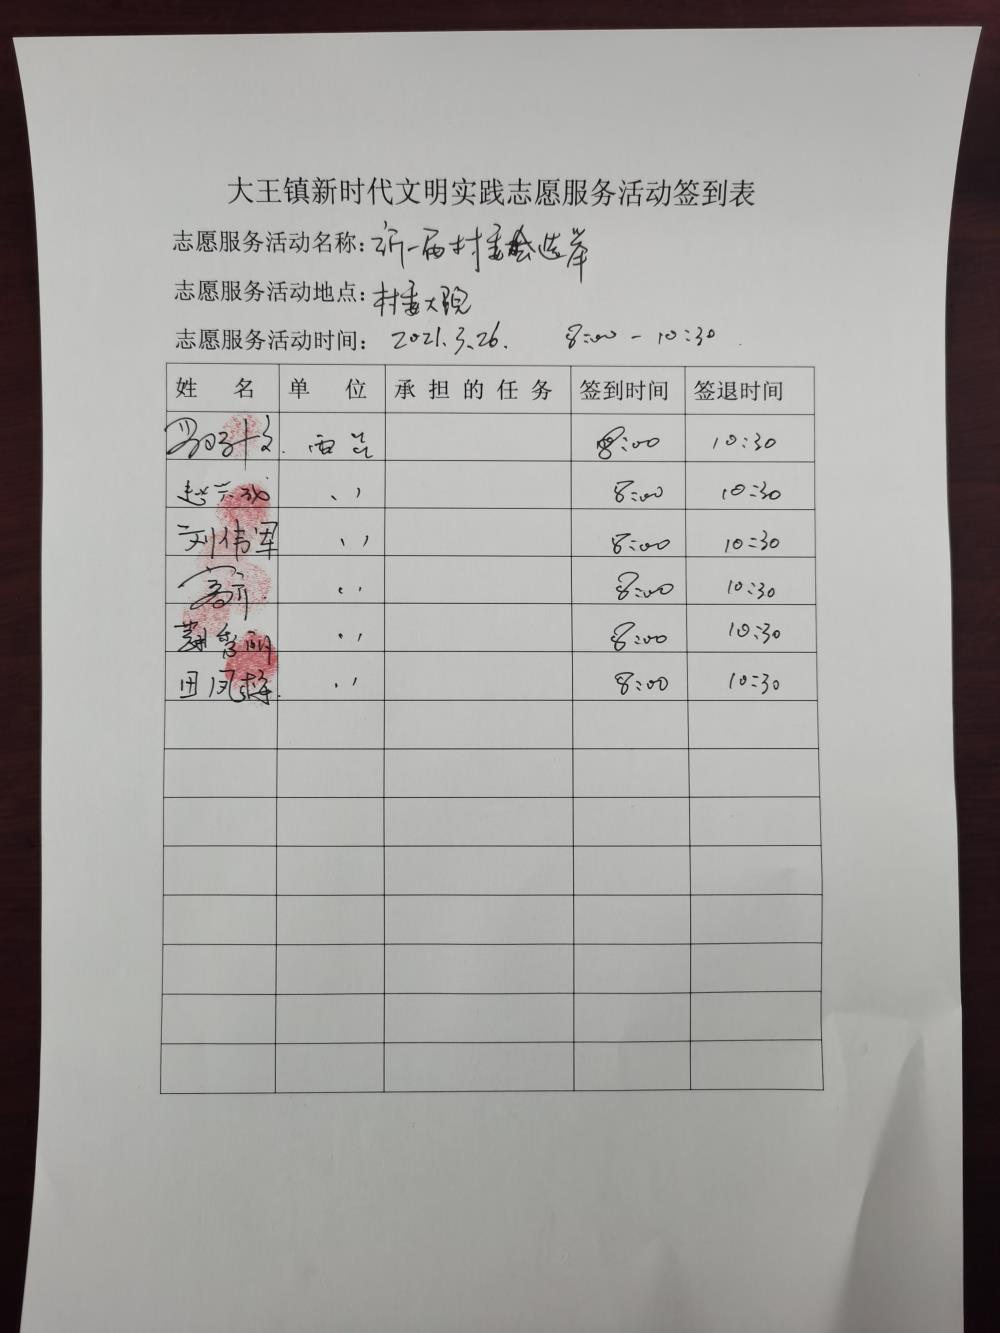 大王镇新时代文明实践志愿服务活动签到表
志愿服务活动名称: 新一届村委会选举
志愿服务活动地点: 村委大院
志愿服务活动时间: 2021.3.26. 8:00 - 10:30
姓 名 单 位 承担的任务 签到时间 签退时间
8:00 10:30
〃 8:00 10:30
刘伟军 〃 8:00 10:30
〃 8:00 10:30
〃 8:00 10:30
田凤梅 〃 8:00 10:30